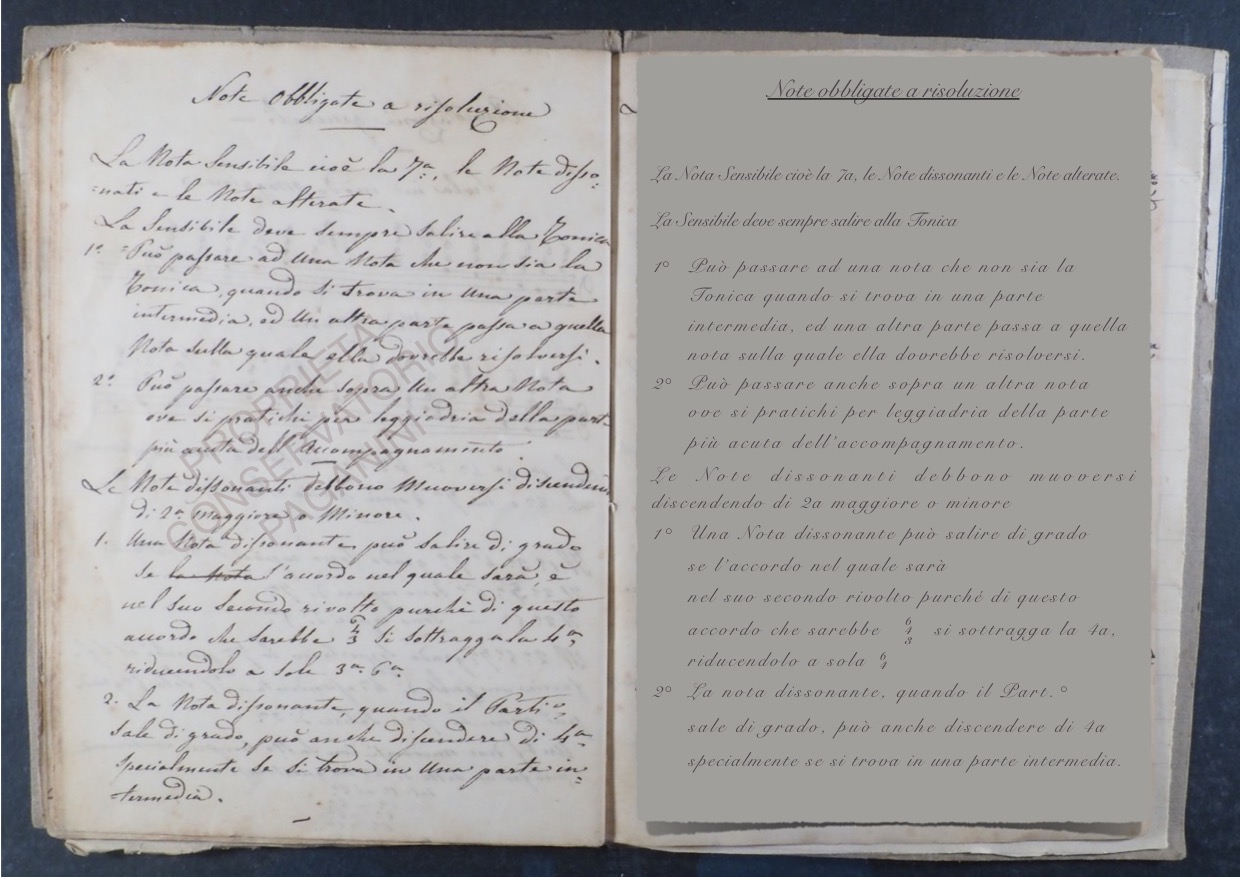 Note obbligate a risoluzione
La Nota Sensibile cioè la 7ª, le Note disso=
=nati e le Note alterate.
La Sensibile deve sempre salire alla Tonica
1º =Può passare ad una Nota che non sia la
Tonica, quando si trova in una parte
intermedia, ed un altra parte passa a quella
Nota sulla quale ella dovrebbe risolversi.
2º Può passare anche sopra un altra Nota
ove si pratichi per leggiadria della parte
più acuta dell'Accompagnamento.
Le Note dissonanti debbono Muoversi discendendo
di 2ª maggiore o Minore.
1. Una Nota dissonante può salire di grado
se la Nota l'accordo nel quale sarà, è
nel suo secondo rivolto purchè di questo
accordo che sarebbe 6 4 3 si sottragga la 4ª,
riducendolo a sole 3ª 6ª
2. La Nota dissonante, quando il Parti.º
sale di grado, può anche discendere di 4ª
specialmente se si trova in una parte in=
=termedia.
PROPRIETÀ
CONSERVATORIO
PAGANINI
Note obbligate a risoluzione
La Nota Sensibile cioè la 7a, le Note dissonanti e le Note alterate.
La Sensibile deve sempre salire alla Tonica
1° Può passare ad una nota che non sia la
Tonica quando si trova in una parte
intermedia, ed una altra parte passa a quella
nota sulla quale ella dovrebbe risolversi.
2° Può passare anche sopra un altra nota
ove si pratichi per leggiadria della parte
più acuta dell'accompagnamento.
Le Note dissonanti debbono muoversi
discendendo di 2a maggiore o minore
1° Una Nota dissonante può salire di grado
se l'accordo nel quale sarà
nel suo secondo rivolto purché di questo
accordo che sarebbe 6 4 3 si sottragga la 4a,
riducendolo a sola 6 4
2° La nota dissonante, quando il Part.°
sale di grado, può anche discendere di 4a
specialmente se si trova in una parte intermedia.